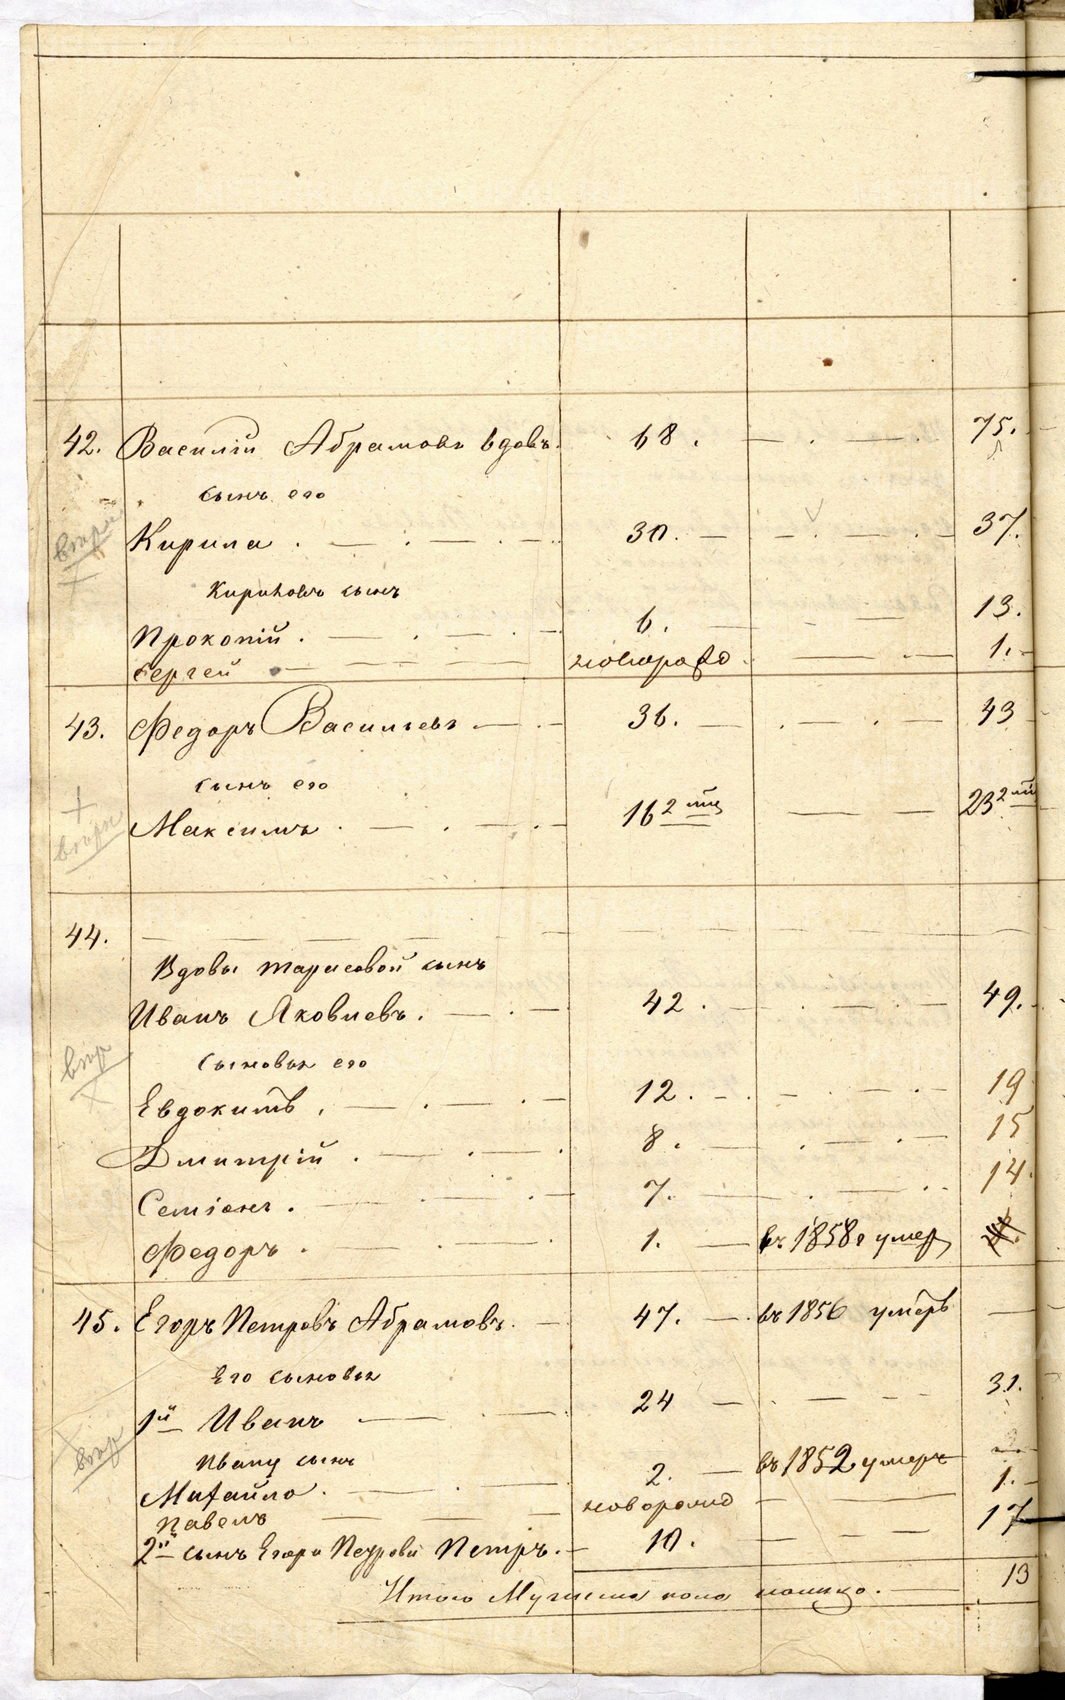 42. Василій Абрамовъ вдовъ. 68. 75.
сынъ его
Кирила 30. 37.
Кириловъ сынъ
Прокопій. 6. 13.
Сергей новорожд 1.
43. Федоръ Васильевъ 36. 43
сынъ его
Максимъ 16 2 мц 23 2 мц
44.
Вдовы Тарасовой сынъ
Иванъ Яковлевъ. 42. 49.
сыновья его
Евдокимъ 12. 19
Дмитрій 8. 15
Семіонъ. 7. 14.
Федоръ 1. въ 1858 г умер
45. Егоръ Петровъ Абрамовъ. 47. въ 1856 умеръ
Его сыновья
1й Иванъ 24 31.
Ивану сынъ
Михайло. 2. въ 1852 умеръ
Павелъ новорожд 1.
2й сынъ Егора Петрова Петръ. 10. 17
Итого Мужеска пола налицо. 13